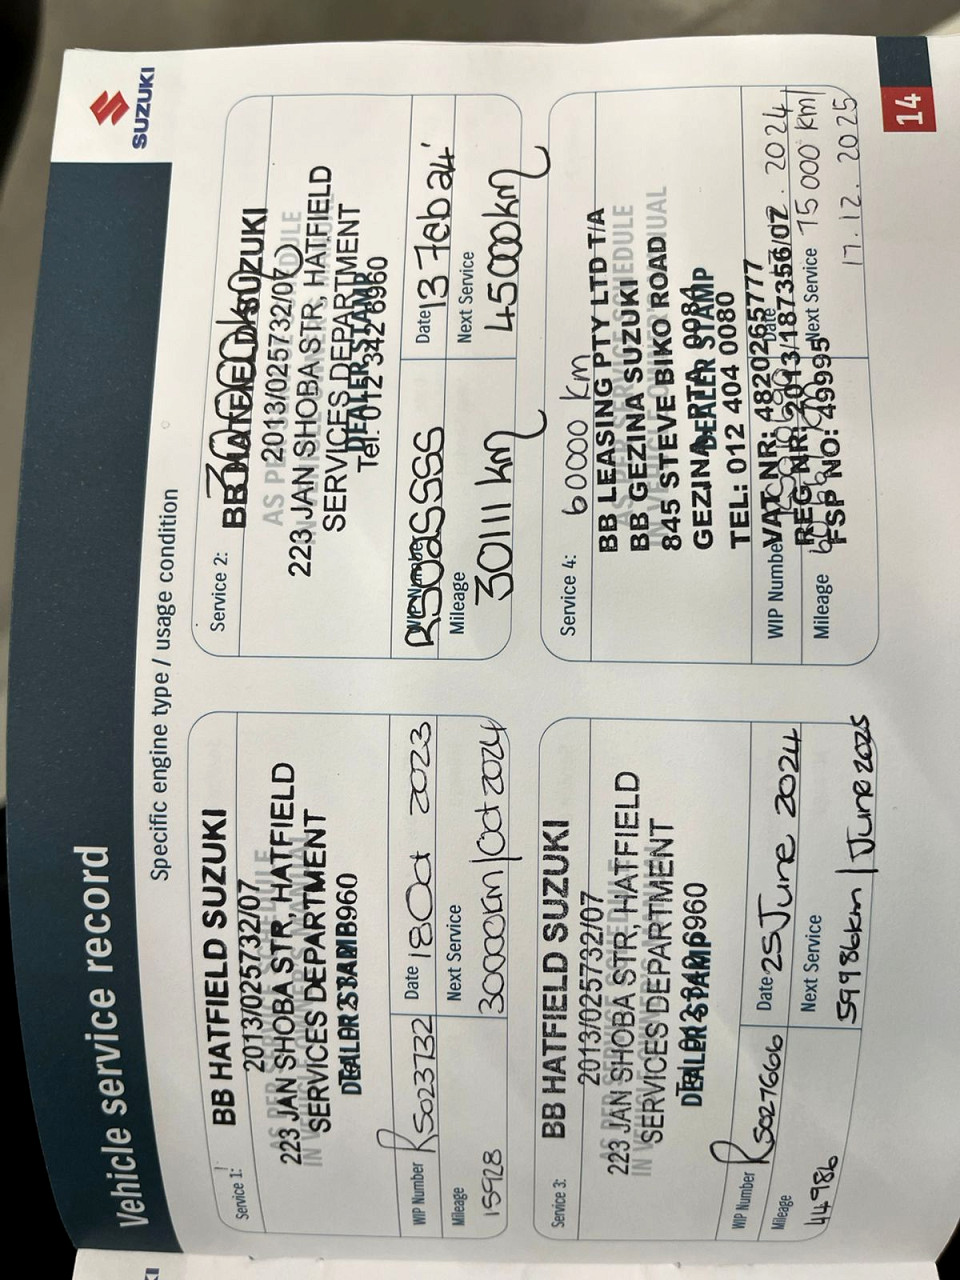 Vehicle service record
SUZUKI
Specific engine type / usage condition
Service 1:
BB HATFIELD SUZUKI
2013/025732/07
223 JAN SHOBA STR, HATFIELD
SERVICES DEPARTMENT
WIP Number RS023732
Date 18 Oct 2023
Mileage
15928
Next Service
30000km/Oct 2024
Service 2:
30000km
BB HATFIELD SUZUKI
AS PER SERVICE SCHEDULE
2013/025732/07
223 JAN SHOBA STR, HATFIELD
SERVICES DEPARTMENT
DEALER STAMP
Tel: 012 342 6960
WIP Number
Date 13 Feb 24'
Mileage
30111 km
Next Service
45000km
Service 3:
BB HATFIELD SUZUKI
2013/025732/07
223 JAN SHOBA STR, HATFIELD
SERVICES DEPARTMENT
DEALER STAMP
WIP Number RS027666
Date 25 June 2024
Mileage
44986
Next Service
59986km/June 2025
Service 4:
60000 km
BB LEASING PTY LTD T/A
BB GEZINA SUZUKI
845 STEVE BIKO ROAD
GEZINA
DEALER STAMP
TEL: 012 404 0080
WIP Number
VAT NR: 4820265777
Date
2024
REG NR: 2013/187356/07
Mileage
FSP NO: 49995
Next Service 75 000 km/
17.12.2025
14